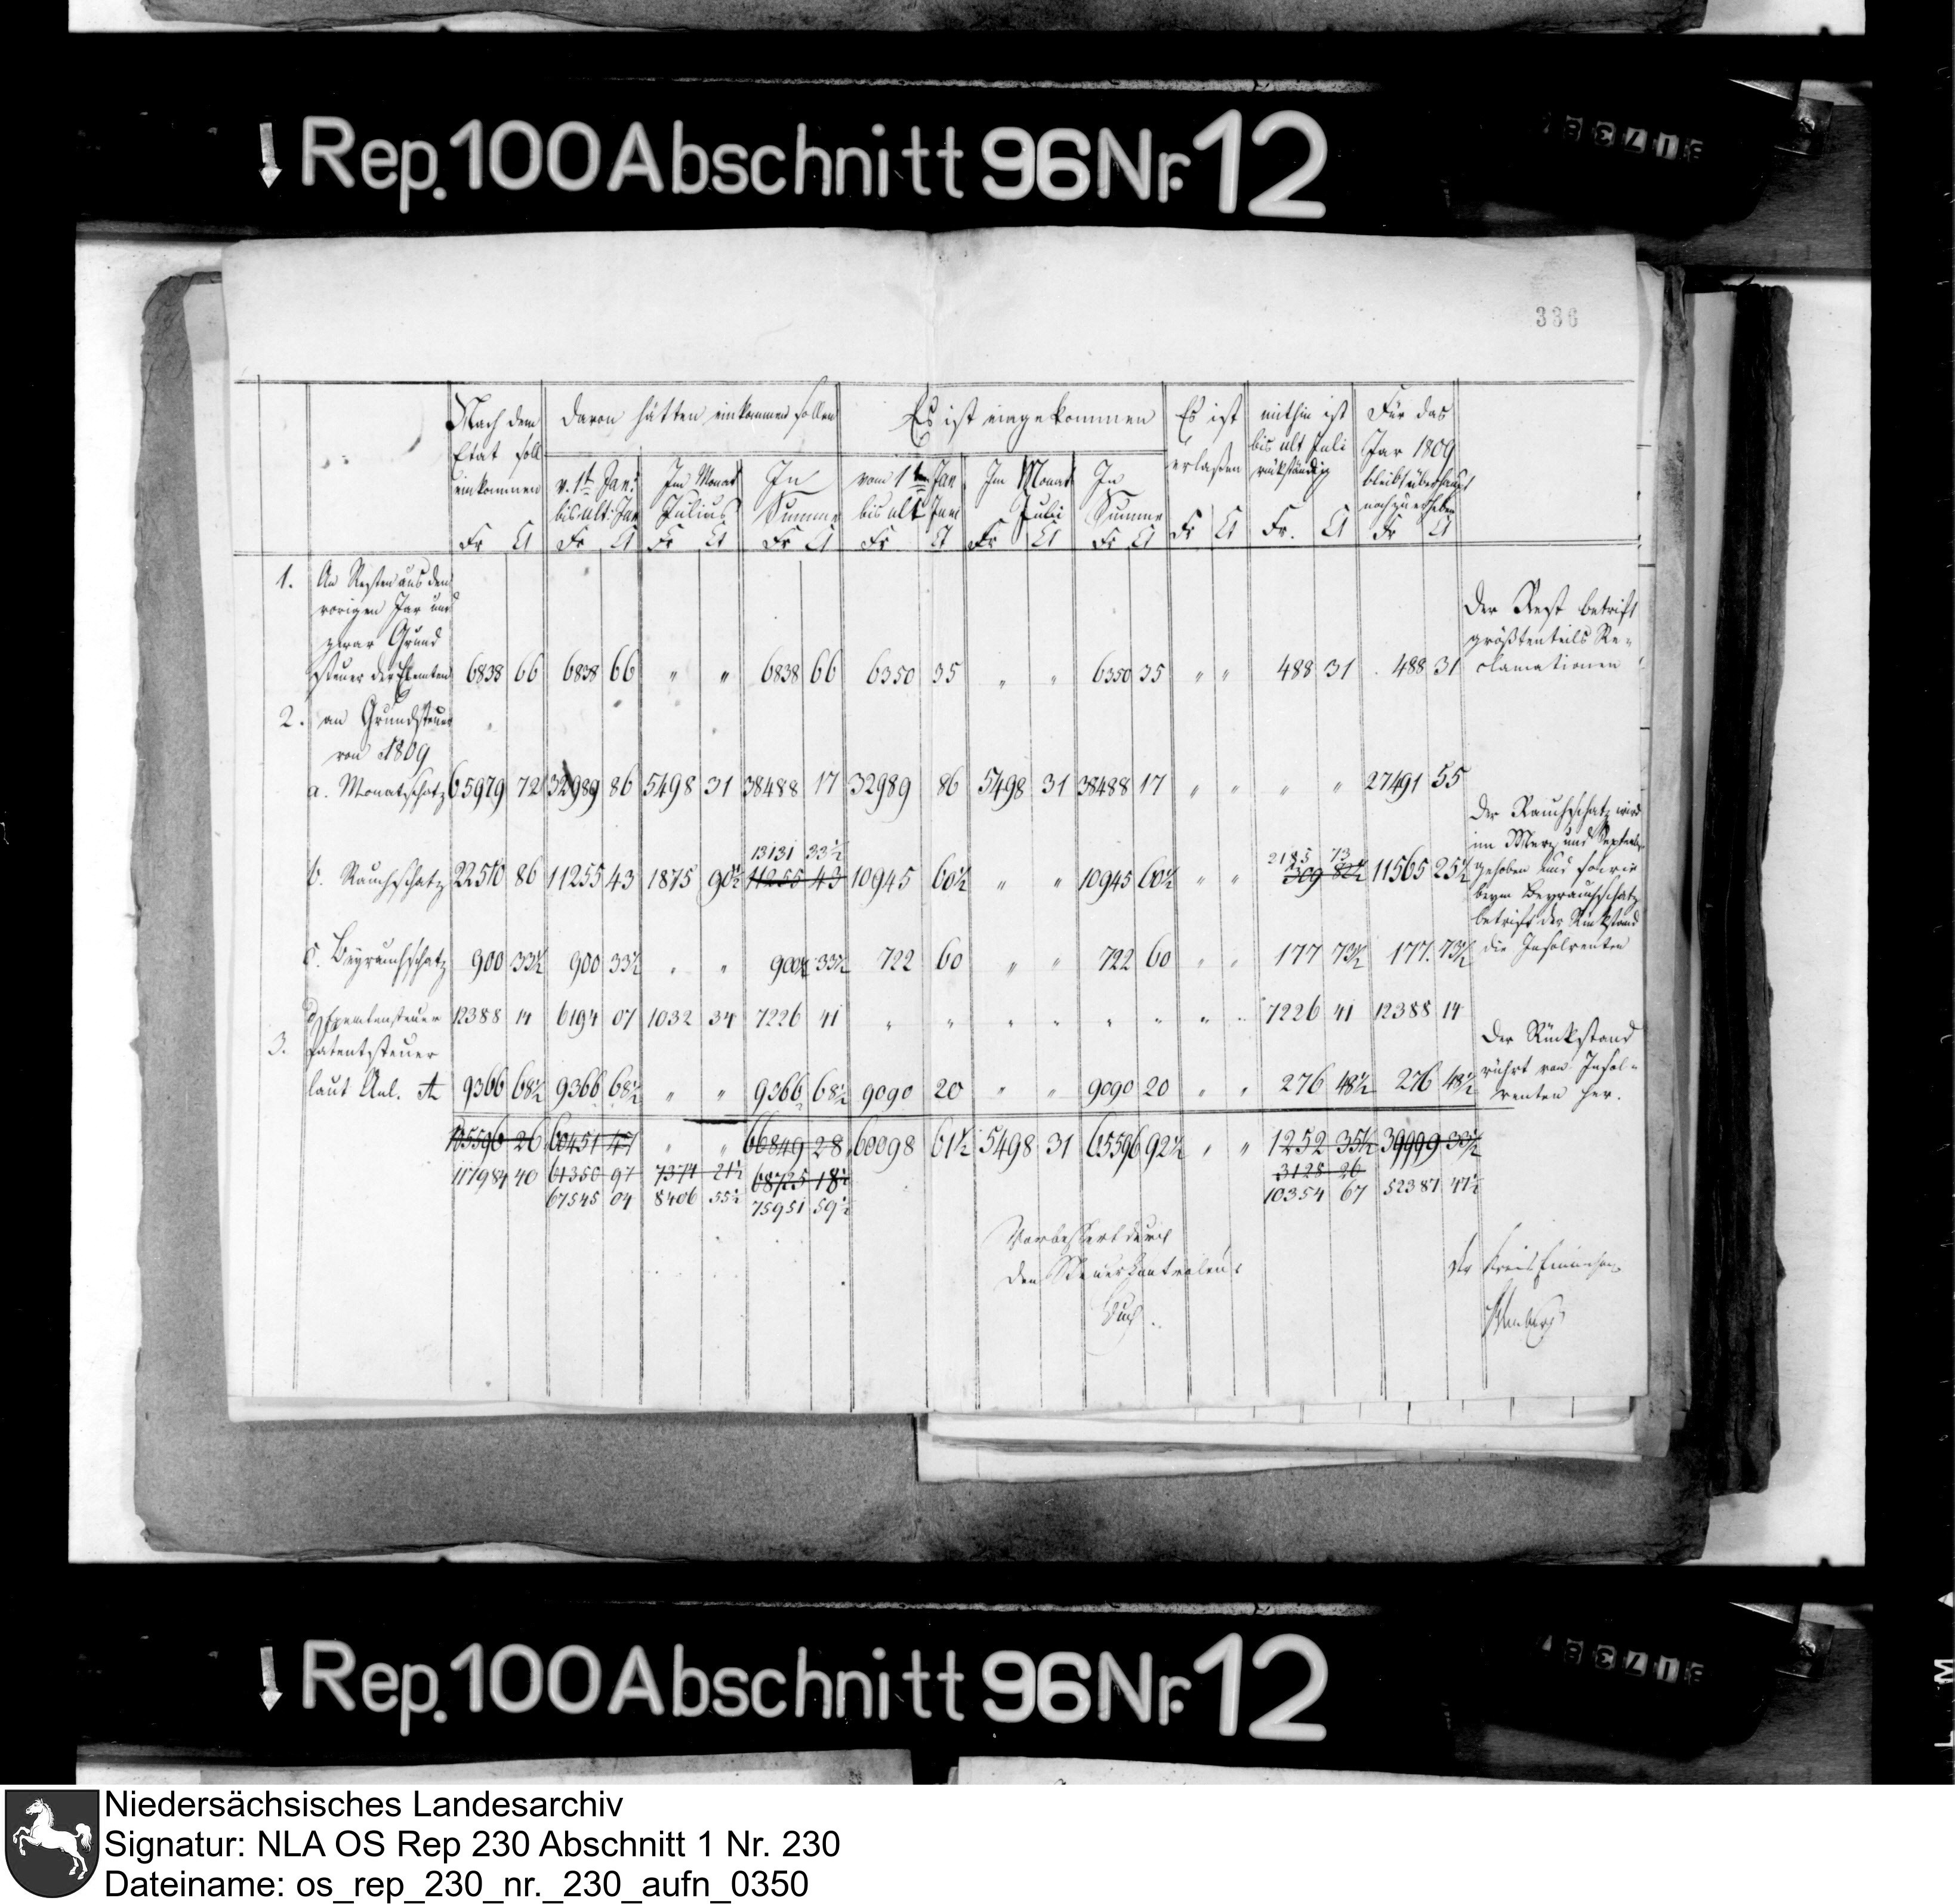 Rep. 100 Abschnitt 96 Nr. 12
336
Nach dem Etat soll einkommen
davon hätten einkommen sollen
Es ist eingekommen
Es ist erlaßen
mithin ist bis ult Juli rückständig
Für das Jar 1809 bleibt überhaupt noch zu erheben
v. 1t Jan: bis ult: Jun
Im Monat Julius
In Summe
vom 1ten Jan bis ult Juni
Im Monat Juli
In Summe
Fr Ct Fr Ct Fr Ct Fr Ct Fr Ct Fr Ct Fr Ct Fr Ct Fr. Ct Fr Ct
1. An Resten aus dem
vorigen Jar und
zwar Grund
Steuer der Exemten 6838 66 6838 66 " " 6838 66 6350 35 " " 6350 35 " " 488 31 488 31
Der Rest betrift
größtenteils Re-
clamationen
2. an Grundsteuer
von 1809
a. Monatschatz 65979 72 32989 86 5498 31 38488 17 32989 86 5498 31 38488 17 " " " " 27491 55
13131 33½
2185 73
b. Rauchschatz 22510 86 11255 43 1875 90½ 11255 43 10945 60½ " " 10945 60½ " " 309 82½ 11565 25½
Der Rauchschatz wird
im Merz und Septemb.
gehoben und so wie
beym Beyrauchschatz
betrift der Rückstand
die Insolventen
c. Beyrauchschatz 900 33½ 900 33½ " " 900 33½ 722 60 " " 722 60 " " 177 73½ 177. 73½
d. Exemtensteuer 12388 14 6194 07 1032 34 7226 41 " " " " " " " " 7226 41 12388 14
3. Patentsteuer
laut Anl. A 9366 68½ 9366 68½ " " 9366 68½ 9090 20 " " 9090 20 " " 276 48½ 276 48½
Der Rückstand
rührt von Insol-
venten her.
105596 26 60451 47 " " 66849 28 60098 61½ 5498 31 65596 92½ " " 1252 35½ 39999 33½
117984 40 61350 97 7374 21½ 68725 18½ 3128 26
67545 04 8406 55½ 75951 59½ 10354 67 52387 47½
Verbessert durch
den Steuer Controleur
Der Kreis Einnehmer
Niedersächsisches Landesarchiv
Signatur: NLA OS Rep 230 Abschnitt 1 Nr. 230
Dateiname: os_rep_230_nr._230_aufn_0350
Rep. 100 Abschnitt 96 Nr. 12